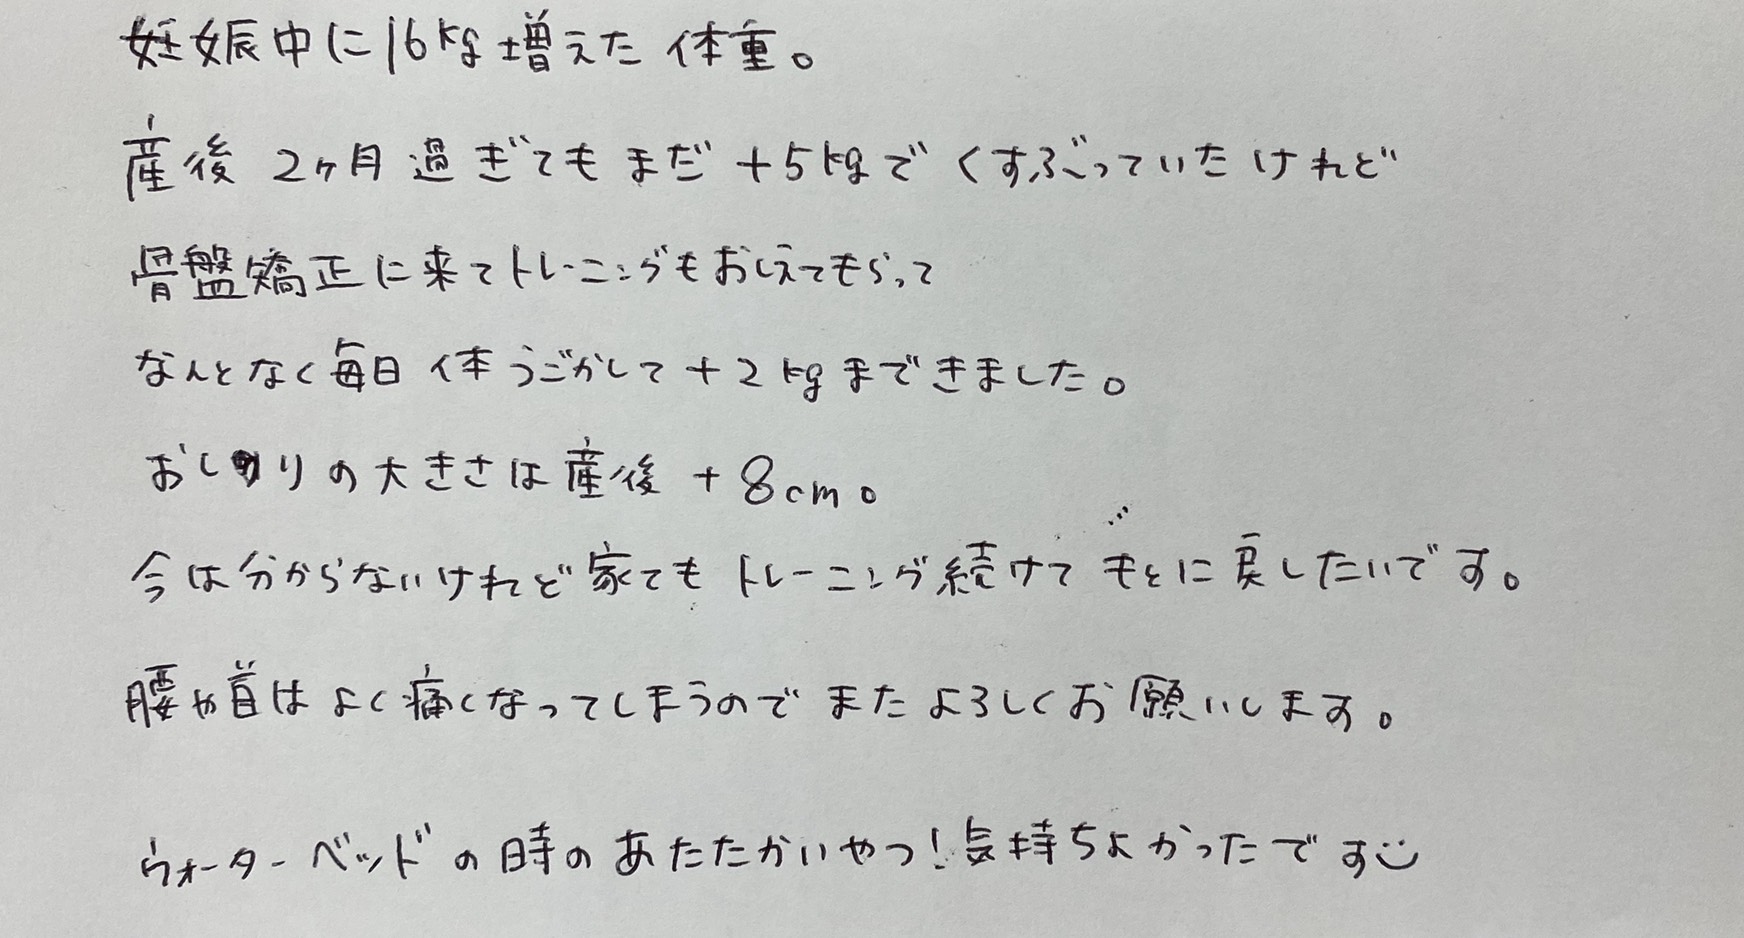 妊娠中に16kg増えた体重。
産後2ヶ月過ぎてもまだ+5kgでくすぶっていたけれど
骨盤矯正に来てトレーニングもおしえてもらって
なんとなく毎日体うごかして+2kgまできました。
おしりの大きさは産後+8cm。
今は分からないけれど家でもトレーニング続けてもとに戻したいです。
腰や首はよく痛くなってしまうのでまたよろしくお願いします。
ウォーターベッドの時のあたたかいやつ!気持ちよかったです